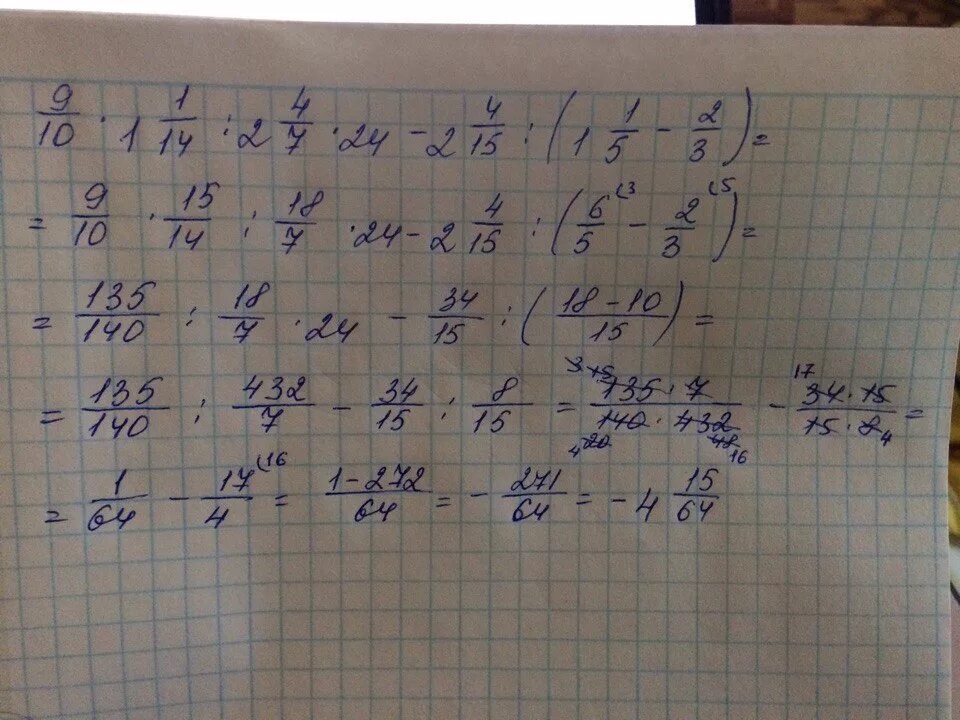 9/10 · 1 1/14 : 2 4/7 · 24 - 2 4/15 : (1 1/5 - 2/3) =
= 9/10 · 15/14 : 18/7 · 24 - 2 4/15 : (6/5 (3 - 2/3 (5) =
= 135/140 : 18/7 · 24 - 34/15 : ((18 - 10)/15) =
= 135/140 : 432/7 - 34/15 : 8/15 = (135 · 7)/(140 · 432) 3 15 4 20 48 16 - (34 · 15)/(15 · 8) 17 4 =
= 1/64 - 17/4 (16 = (1 - 272)/64 = - 271/64 = - 4 15/64